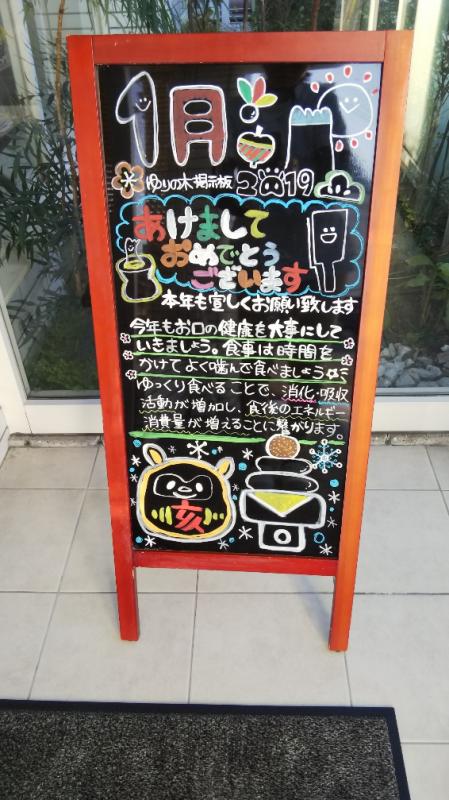 1月
ゆりの木掲示板 2019
あけまして
おめでとう
ございます
本年も宜しくお願い致します
今年もお口の健康を大事にして
いきましょう。食事は時間を
かけてよく噛んで食べましょう☆
ゆっくり食べることで、消化・吸収
活動が増加し、食後のエネルギー
消費量が増えることに繋がります。
亥